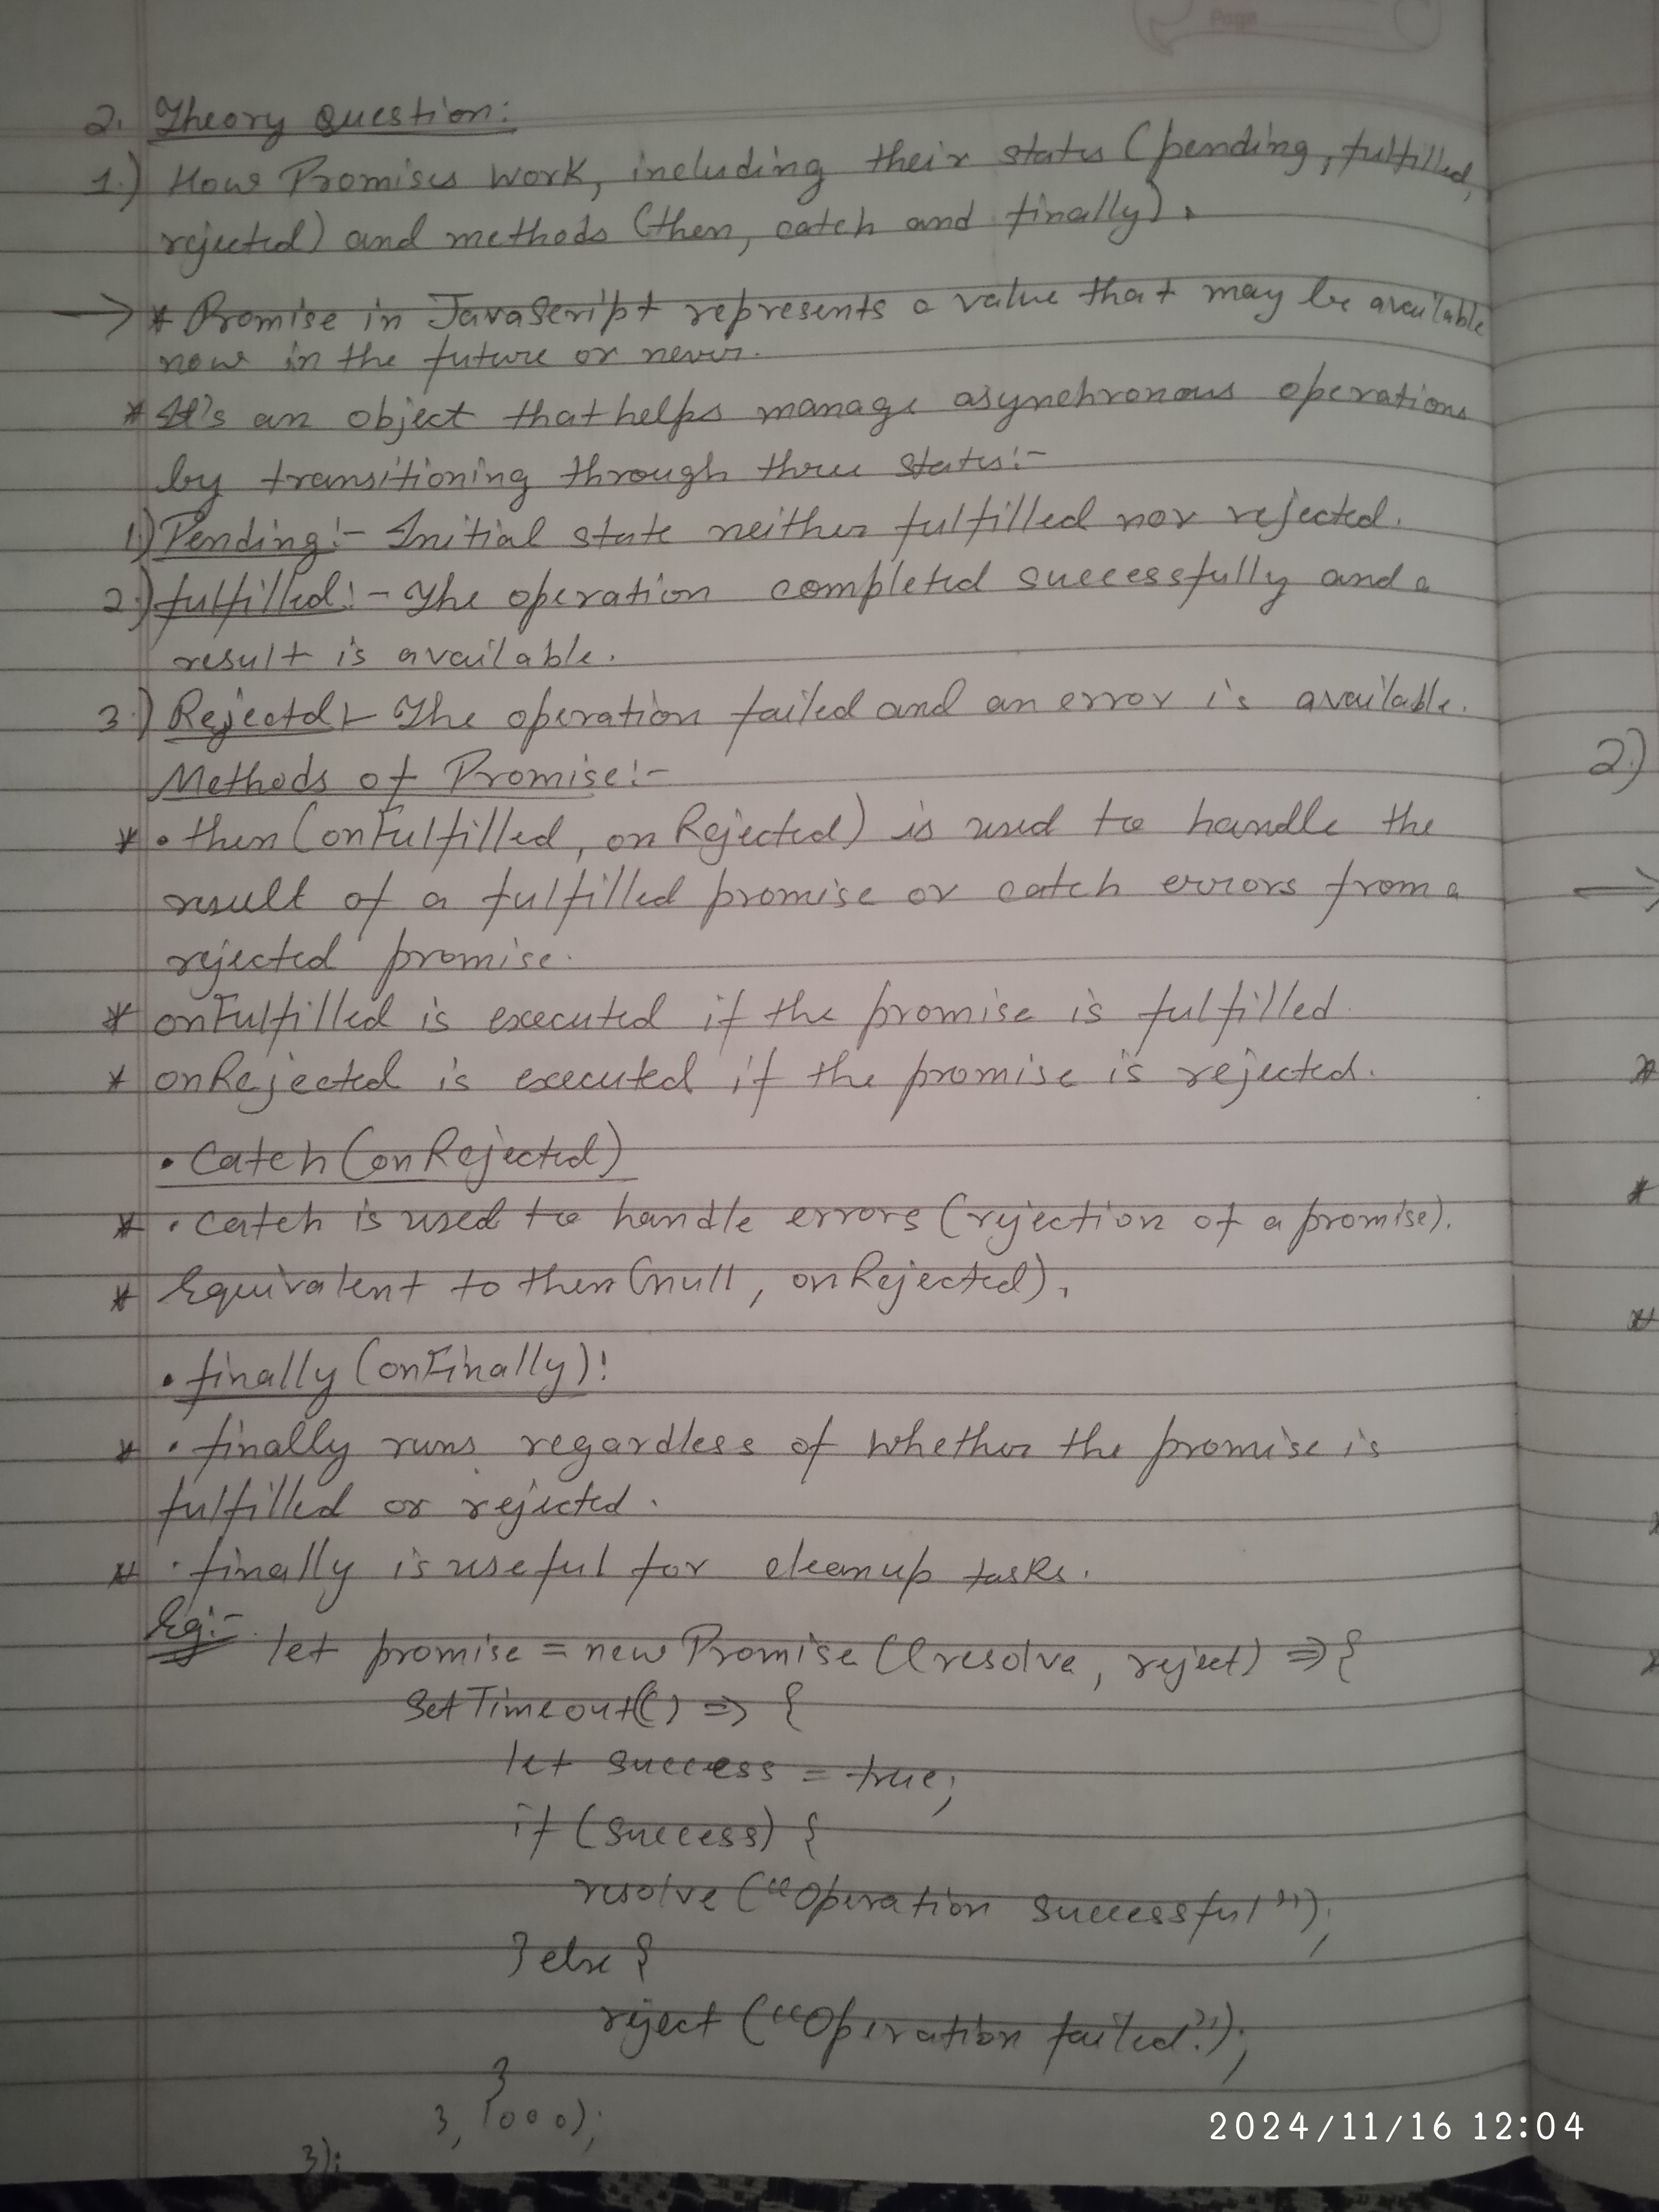 Page
2. Theory Question:
1.) How Promises work, including their states (pending, fulfilled,
rejected) and methods (then, catch and finally).
→ * Promise in JavaScript represents a value that may be available
now in the future or never.
* It's an object that helps manage asynchronous operations
by transitioning through three states:-
1) Pending:- Initial state neither fulfilled nor rejected.
2.) fulfilled:- The operation completed successfully and a
result is available.
3.) Rejected:- The operation failed and an error is available.
Methods of Promise:-
* .then (onFulfilled, onRejected) is used to handle the
result of a fulfilled promise or catch errors from a
rejected promise.
* onFulfilled is executed if the promise is fulfilled.
* onRejected is executed if the promise is rejected.
.Catch (onRejected)
* .catch is used to handle errors (rejection of a promise).
* Equivalent to then (null, onRejected).
.finally (onFinally):
* .finally runs regardless of whether the promise is
fulfilled or rejected.
* .finally is useful for cleanup tasks.
Eg:- let promise = new Promise ((resolve, reject) => {
SetTimeout(() => {
let success = true;
if (success) {
resolve ("Operation Successful");
} else {
reject ("Operation failed.");
}
}, 1000);
});
2)
→
2024/11/16 12:04